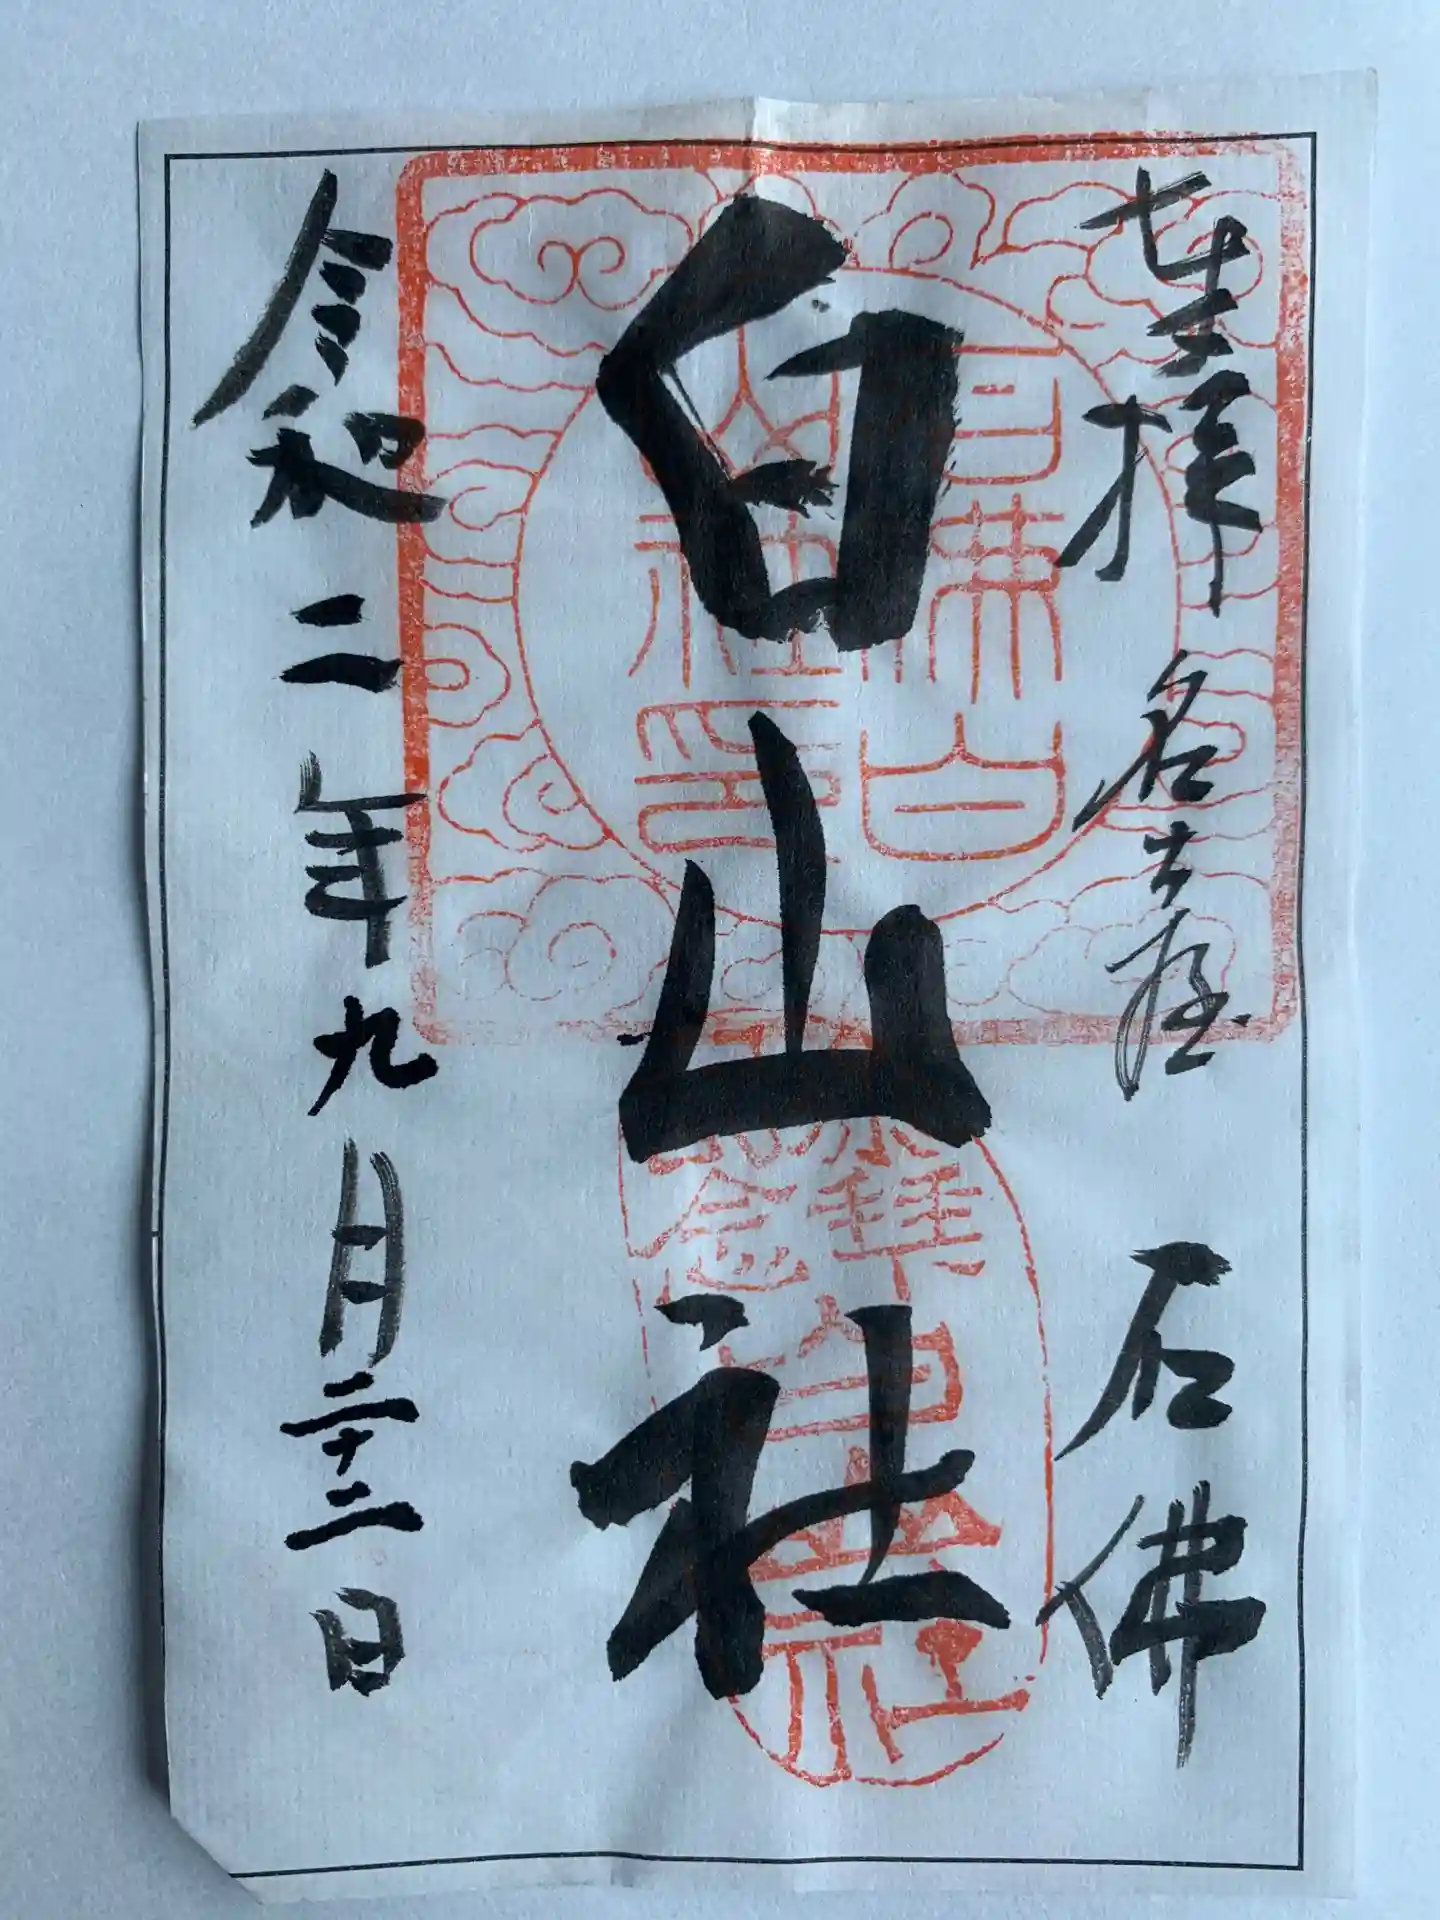 奉拝 名古屋 石佛
白山社
令和二年九月二十二日
石佛白
山社印
参拝
記念
白山社